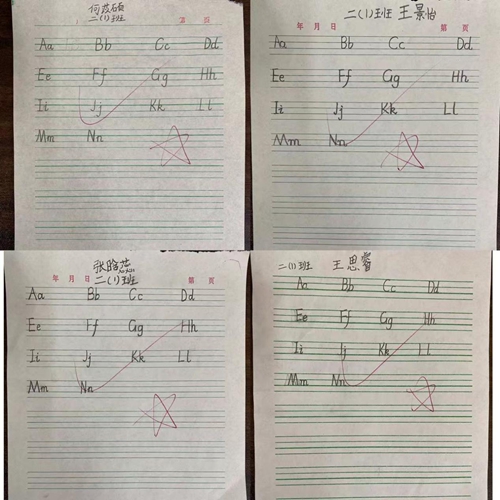 何茂硕
二(1)班
第 页
Aa Bb Cc Dd
Ee Ff Gg Hh
Ii Jj Kk Ll
Mm Nn
二(1)班 王景怡
年 月 日 第 页
Aa Bb Cc Dd
Ee Ff Gg Hh
Ii Jj Kk Ll
Mm Nn
张晗蕊
二(1)班
年 月 日 第 页
Aa Bb Cc Dd
Ee Ff Gg Hh
Ii Jj Kk Ll
Mm Nn
二(1)班 王思睿
Aa Bb Cc Dd
Ee Ff Gg Hh
Ii Jj Kk Ll
Mm Nn